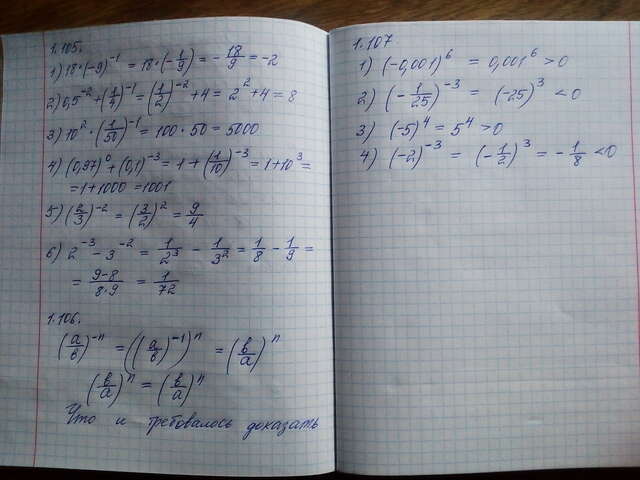 1.105.
1) 18·(-9)⁻¹ = 18·(-1/9) = -18/9 = -2
2) 0,5⁻² + (1/4)⁻¹ = (1/2)⁻² + 4 = 2² + 4 = 8
3) 10² · (1/50)⁻¹ = 100 · 50 = 5000
4) (0,97)⁰ + (0,1)⁻³ = 1 + (1/10)⁻³ = 1 + 10³ =
= 1 + 1000 = 1001
5) (2/3)⁻² = (3/2)² = 9/4
6) 2⁻³ - 3⁻² = 1/2³ - 1/3² = 1/8 - 1/9 =
= (9-8)/(8·9) = 1/72
1.106.
(a/в)⁻ⁿ = ((a/в)⁻¹)ⁿ = (в/a)ⁿ
(в/a)ⁿ = (в/a)ⁿ
Что и требовалось доказать
1.107
1) (-0,001)⁶ = 0,001⁶ > 0
2) (-1/25)⁻³ = (-25)³ < 0
3) (-5)⁴ = 5⁴ > 0
4) (-2)⁻³ = (-1/2)³ = -1/8 < 0